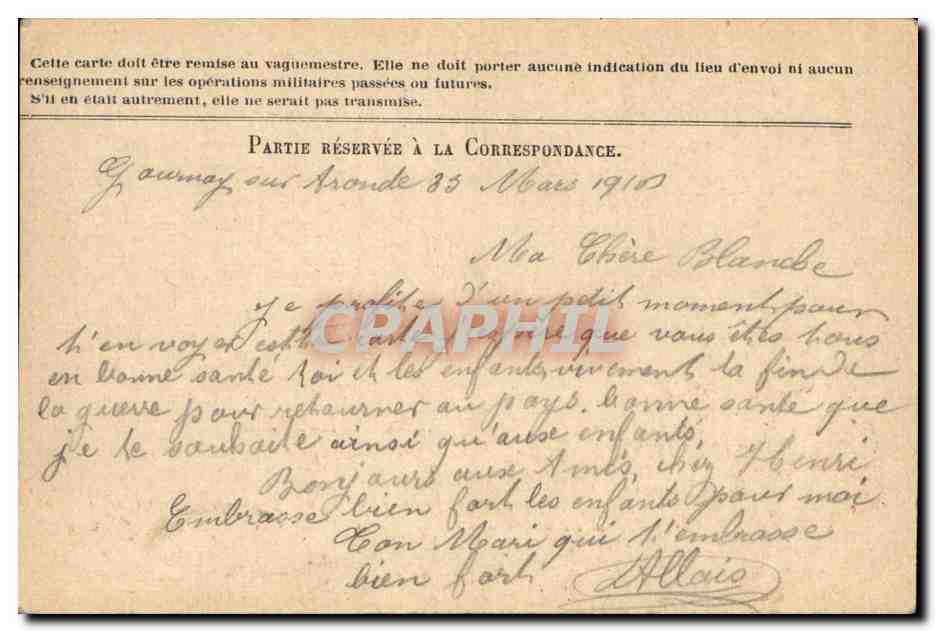 Cette carte doit être remise au vaguemestre. Elle ne doit porter aucune indication du lieu d'envoi ni aucun
renseignement sur les opérations militaires passées ou futures.
S'il en était autrement, elle ne serait pas transmise.
PARTIE RÉSERVÉE À LA CORRESPONDANCE.
Gournay sur Aronde Mars
Ma Chère Blanche
Je profite d'un petit moment pour
t'en voyer cette carte que vous êtes tous
en bonne santé toi et les enfants vivement la fin de
la guerre pour retourner au pays. bonne santé que
je te souhaite ainsi qu'aux enfants,
Bonjours aux Amis, chez Henri
Embrasse bien fort les enfants pour moi
Ton Mari qui t'embrasse
bien fort Allais
CPAPHIL